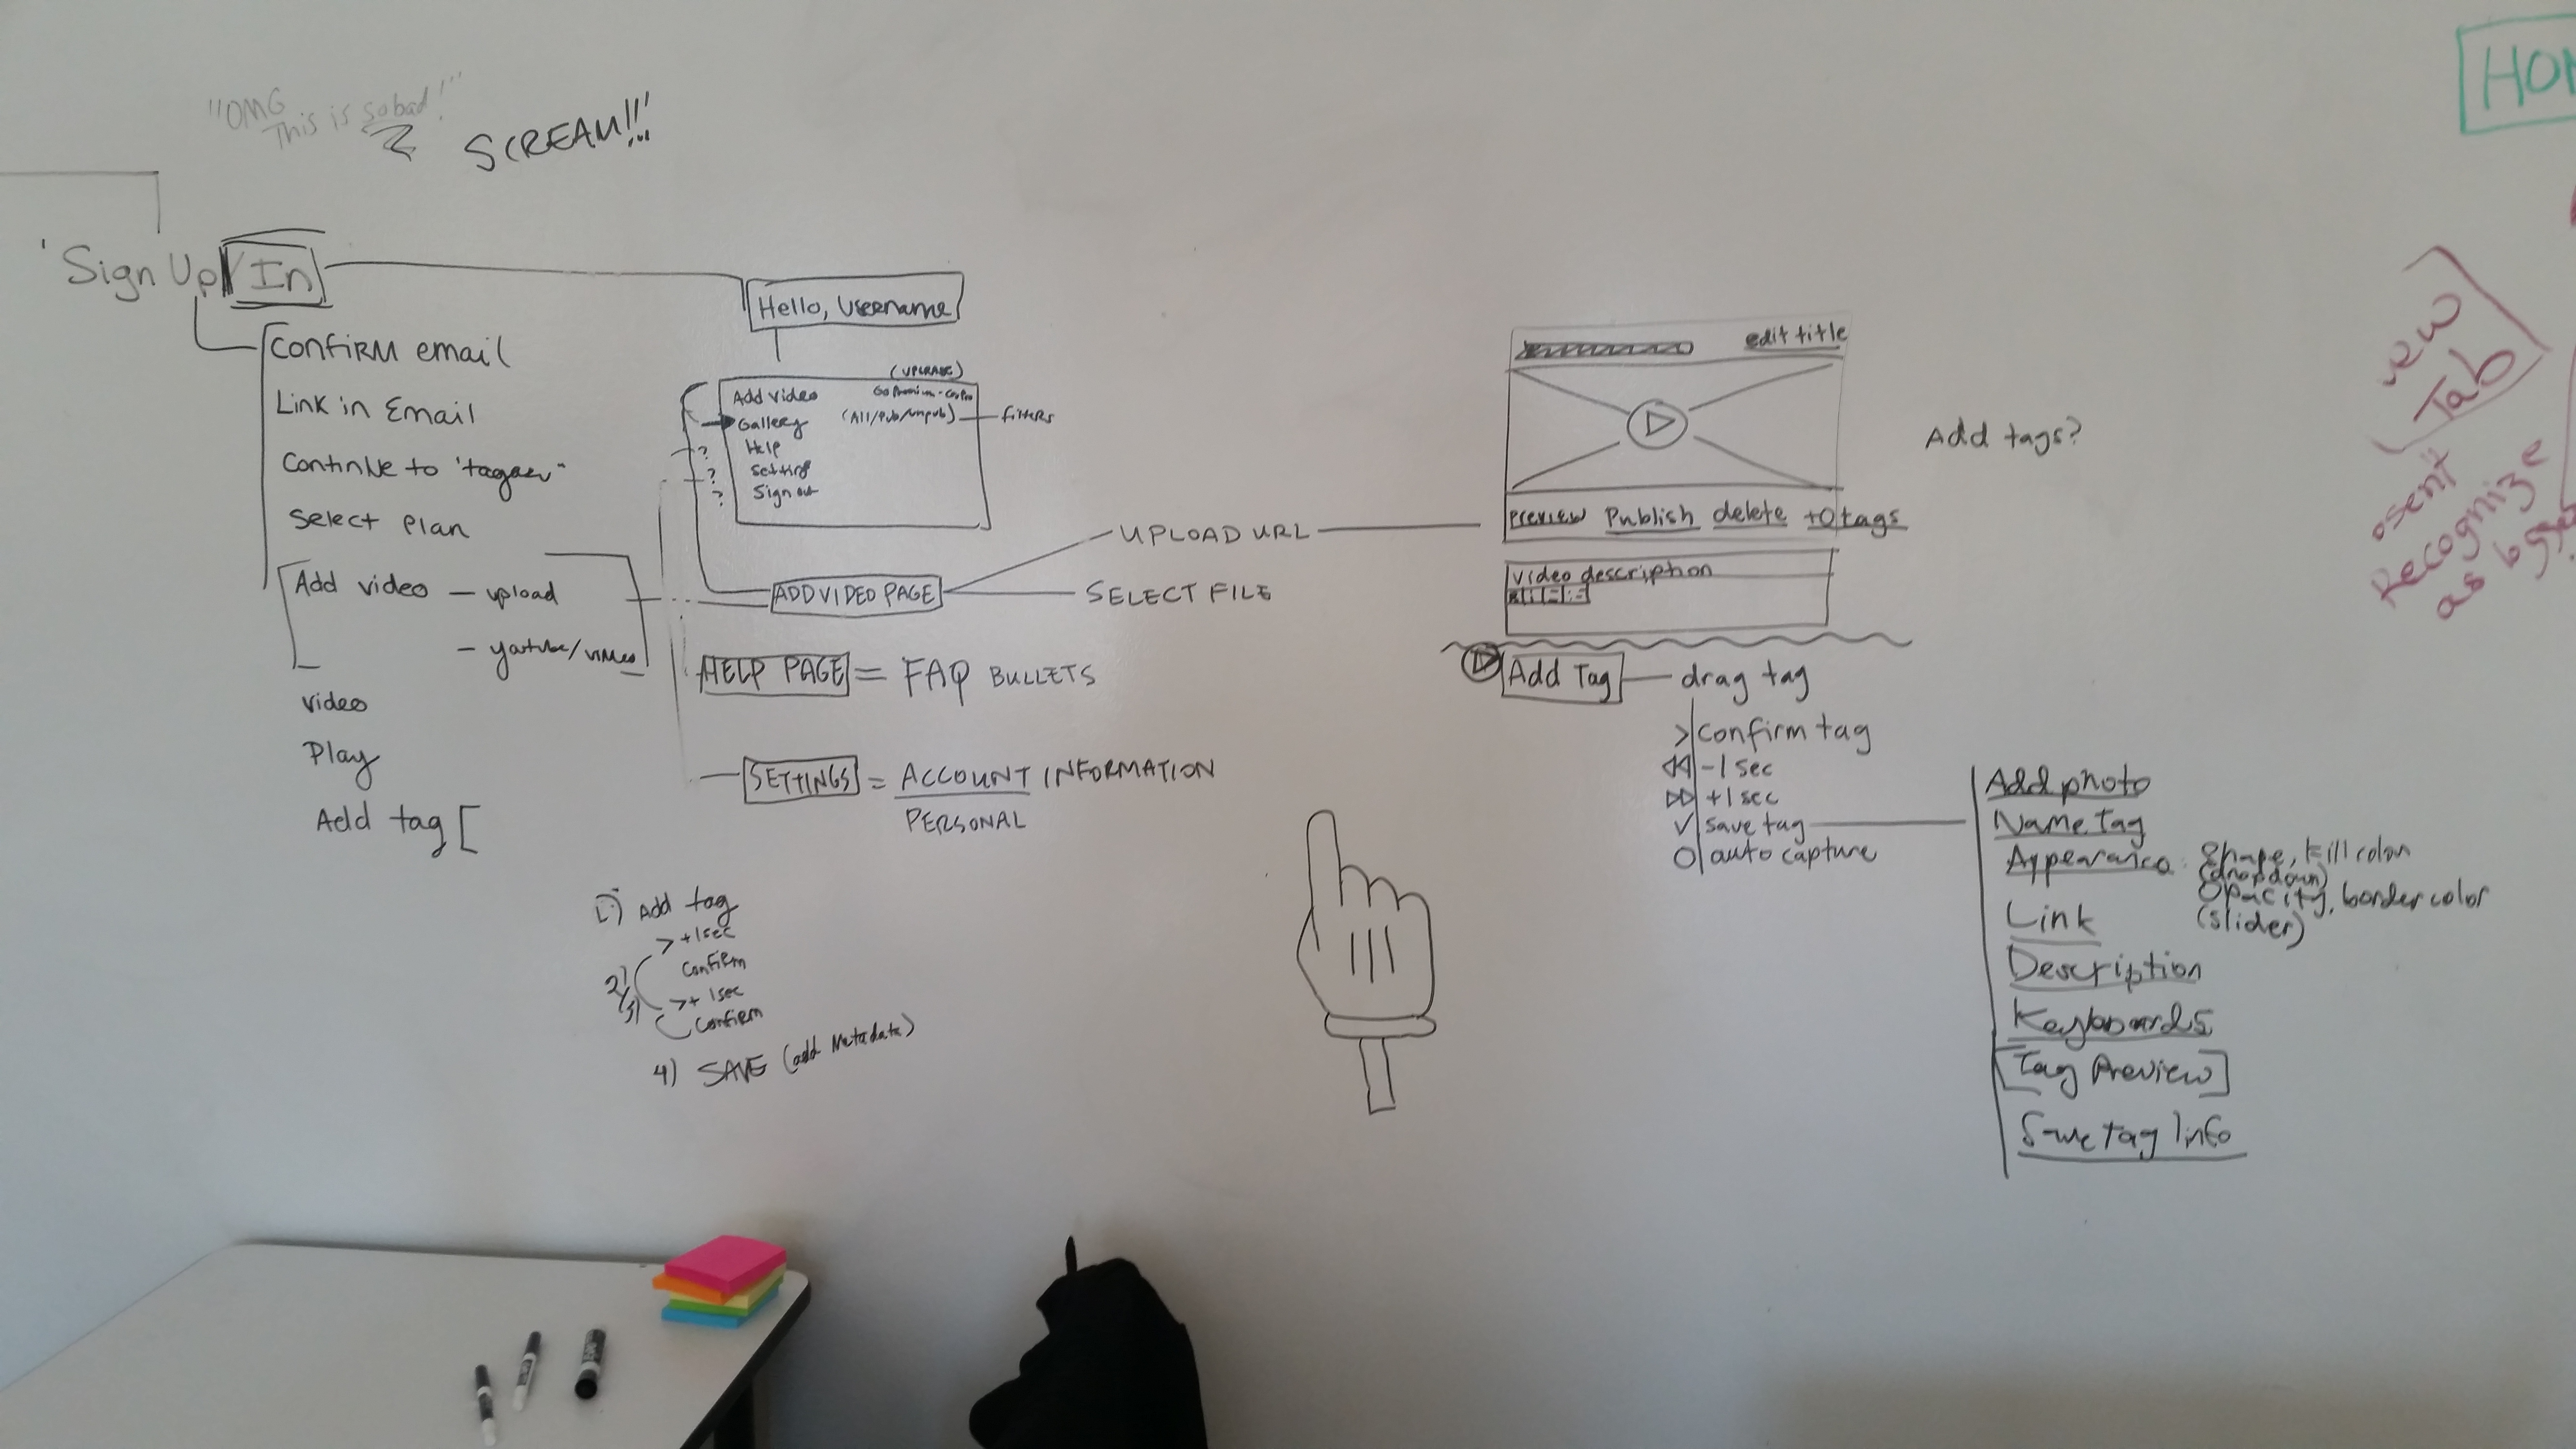 "OMG
This is so bad!"
SCREAM!!!
Sign Up/In
Confirm email
Link in Email
Continue to
Select Plan
Add video — upload
— youtube/vimeo
video
Play
Add tag [
Hello, Username
(UPGRADE)
Add video
Gallery (All/Pub/Unpub) — filters
? Help
? Setting
? Sign out
ADD VIDEO PAGE
UPLOAD URL
SELECT FILE
HELP PAGE = FAQ BULLETS
SETTINGS = ACCOUNT INFORMATION
PERSONAL
1) Add tag
> +1sec
Confirm
2)
3)
> + 1sec
Confirm
4) SAVE (add Metadata)
edit title
preview Publish delete +0 tags
video description
Add tags?
Add Tag — drag tag
> Confirm tag
-1 sec
+1 sec
✓ save tag
O auto capture
Add photo
Name Tag
Appearance: Shape, Fill color
(dropdown)
Opacity, border color
(slider)
Link
Description
Keyboards
[Tag Preview]
Save tag Info
Tab
Recognize
as